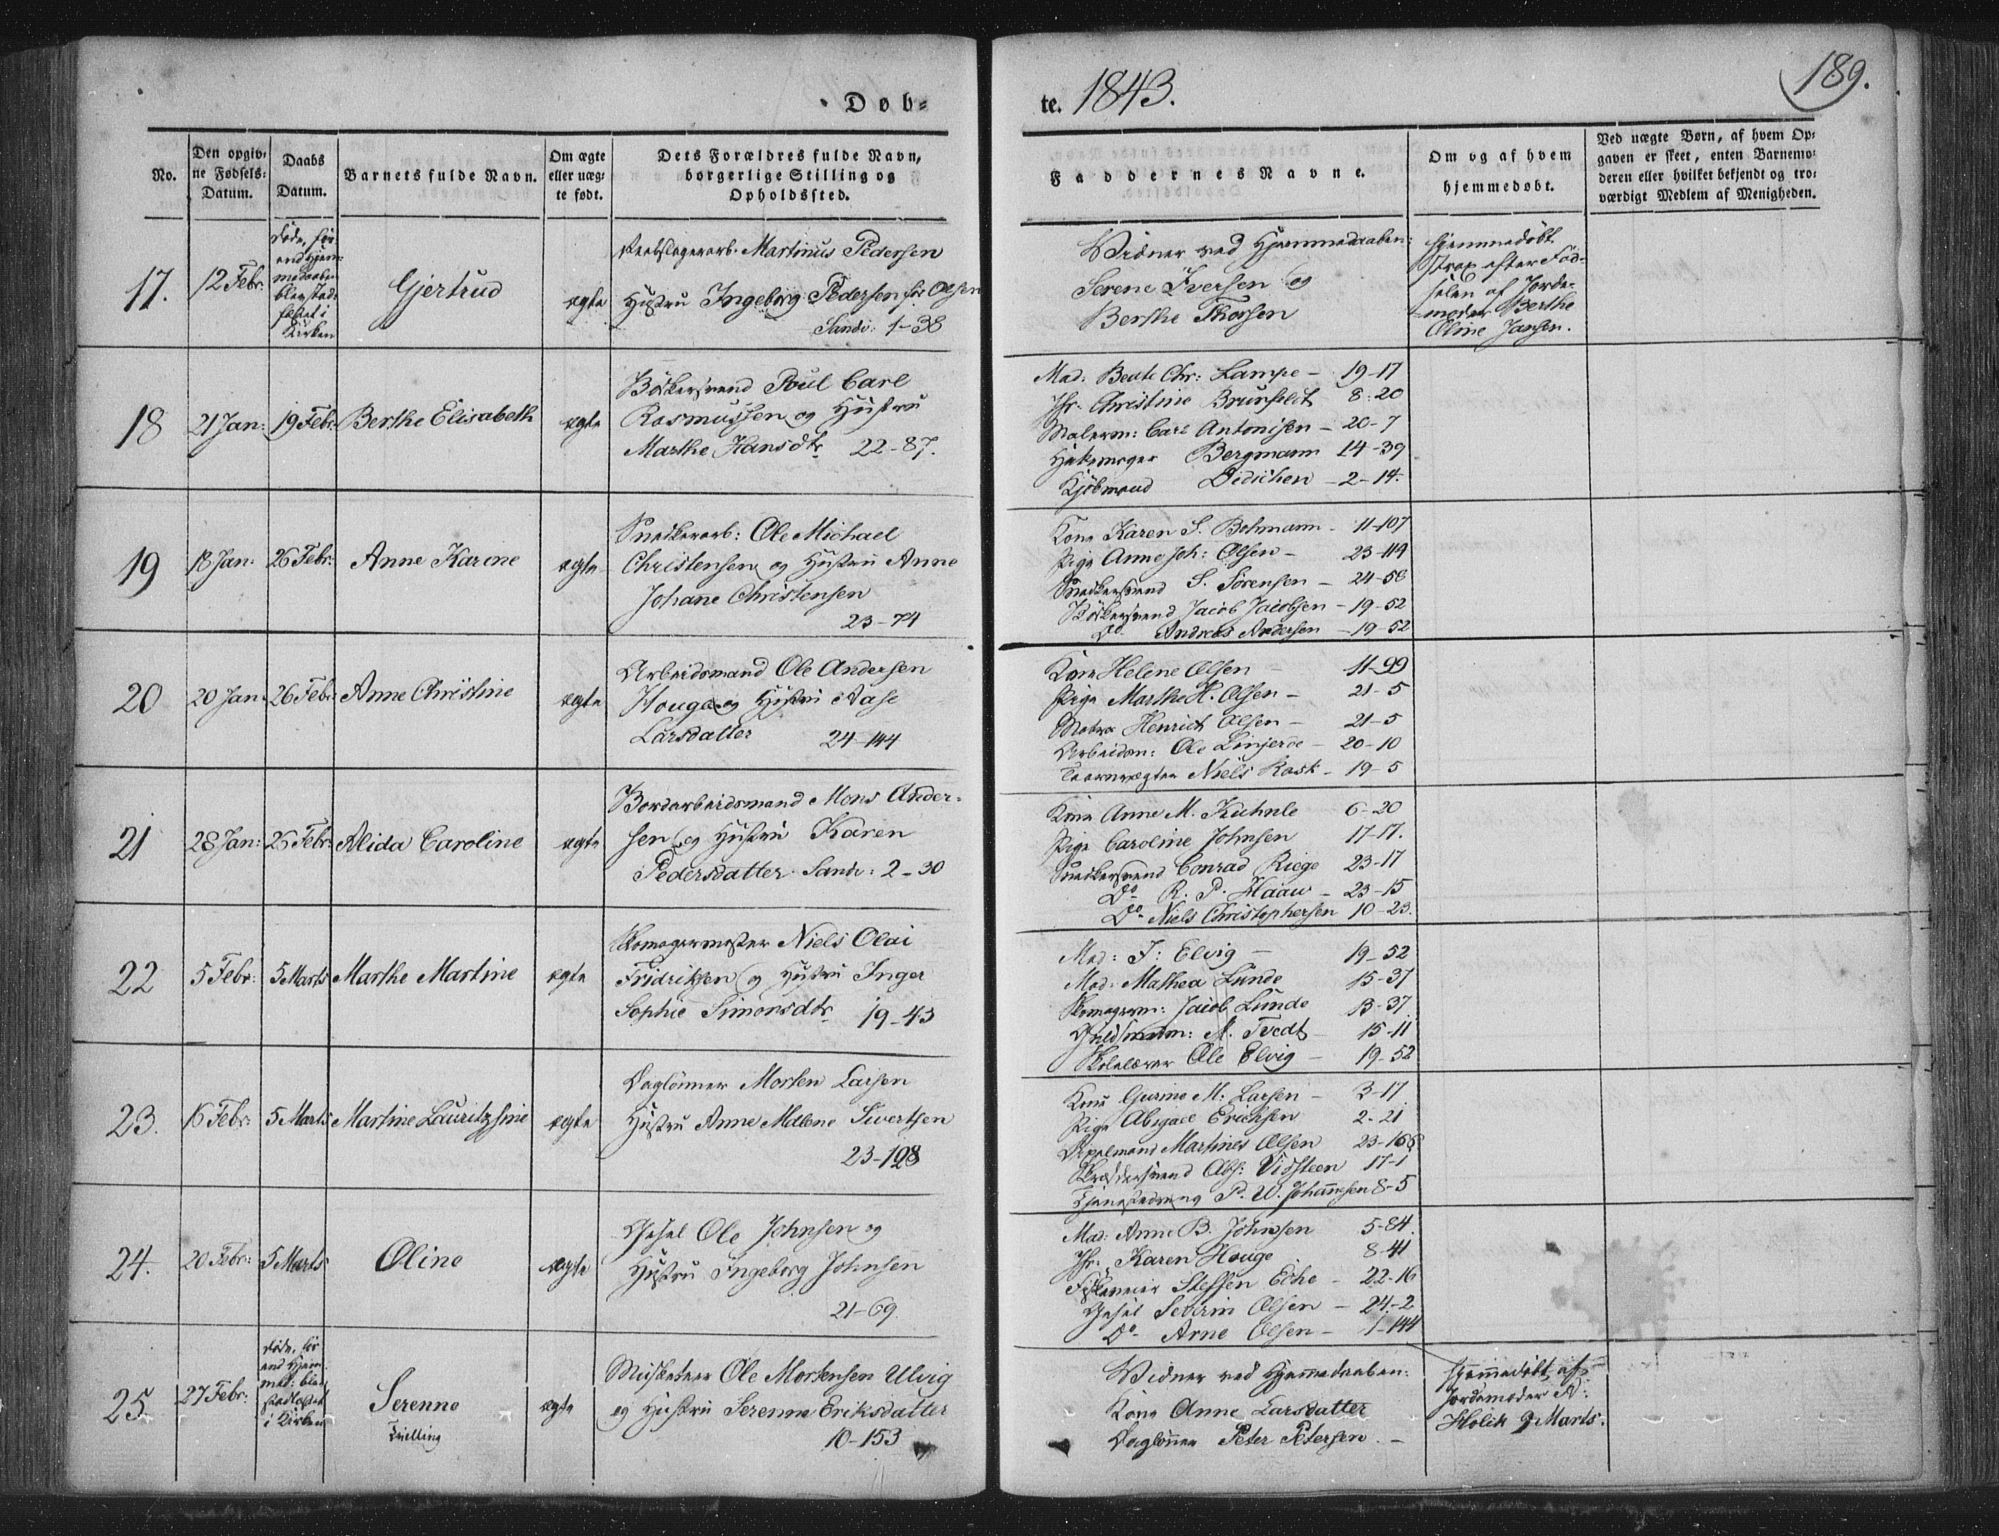 Døb-
te. 1843.
189.
No.
Den opgiv-
ne Fødsels-
Datum.
Daabs
Datum.
Barnets fulde Navn.
Om ægte
eller uæg-
te født.
Dets Forældres fulde Navn,
borgerlige Stilling og
Opholdssted.
Faddernes Navne.
Om og af hvem
hjemmedøbt.
Ved uægte Børn, af hvem Op-
gaven er skeet, enten Barnemo-
deren eller hvilket bekjendt og tro-
værdigt Medlem af Menigheden.
17.
12 Febr:
døde, før
end Hjem-
medaaben
blev stad-
fæstet i
Kirken
Gjertrud
ægte
Reebslagerarb. Martinus Pedersen
Hustru Ingeborg Pedersen för Olsen
Sandv: 1-38
Vidner ved Hjemmedaaben:
Serene Iversen og
Berthe Thorsen
Hjemmedöbt
strax efter Föd-
selen af Jorde-
moder Berthe
Oline Jansen.
18
21 Jan:
19 Febr:
Berthe Elisabeth
ægte
Bödkersvend Poul Carl
Rasmussen og Hustru
Marthe Hansdtr 22-87.
Mad: Beate Chr: Lampe - 19-17
Jfr. Christine Brunfeldt 8-20
Malerm: Carl Antonisen - 20-7
Bergmann 14-39
Kjöbmand Didichen - 2-14.
19
18 Jan:
26 Febr:
Anne Karine
ægte
Snedkerarb: Ole Michael
Christensen og Hustru Anne
Johane Christensen
23-74
Kone Karen S. Bohmann - 11-107
Pige Anne Joh: Olsen - 23-119
Snedkersvend S. Sörensen - 24-58
Bödkersvend Jacob Jacobsen - 19-52
Do. Andreas Andersen - 19-52
20
20 Jan:
26 Febr:
Anne Christine
ægte
Arbeidsmand Ole Andersen
Houge og Hustru Aase
Larsdatter 24-144
Kone Helene Olsen - 11-99
Pige Marthe H. Olsen - 21-5
Matros Henrich Olsen - 21-5
Arbeidsm: Ole Linjerde - 20-10
Taarnvægter Niels Rask - 19-5
21
28 Jan:
26 Febr:
Alida Caroline
ægte
Bordarbeidsmand Mons Ander-
sen og Hustru Karen
Pedersdatter. Sandv: 2-30
Kone Anne M. Kuhnle 6-20
Pige Caroline Johnsen 17-17.
Snedkersvend Conrad Riege 23-17
Do R. P. Haau - 23-15
Do. Niels Christophersen 10-23.
22
5 Febr:
5 Marts
Marthe Martine
ægte
Skomagermester Niels Olai
Fridriksen og Hustru Inger
Sophie Simonsdtr. 19-43
Mad: J: Elvig - 19-52
Mad: Mathea Lunde 15-37
Skomagerm: Jacob Lunde 15-37.
Guldsmedm: M. Tvedt - 15-11
Skolelærer Ole Elvig - 19-52
23.
16 Febr:
5 Marts
Martine Lauritzsine
ægte
Daglönner Morten Larsen
Hustru Anne Malene Sivertsen
23-198
Kone Gurine M: Larsen - 3-17
Pige Abigael Erichsen 2-21
Martines Olsen 23-165
Skræddersvend Abs: Vidsteen 17-1
Tjenestedreng P. W. Johannesen 8-5
24.
20 Febr:
5 Marts
Oline
ægte
Gesel Ole Johnsen og
Hustru Ingeborg Johnsen
21-69.
Mad: Anne B. Johnsen 5-84.
Jfr. Karen Houge 8-41
Steffen Eche - 22-16
Gesel Severin Olsen - 24-2
Do- Arne Olsen - 1-144
25.
27 Febr:
døde, før
end Hjem-
med: blev
stadfæstet
i Kirken
Serenne
Tvilling
ægte
Musketeer Ole Mortensen Ulvig
og Hustru Serenne Eriksdatter
10-153
Vidner ved Hjemmedaaben:
Kone Anne Larsdatter
Daglönner Peter Petersen. -
Hjemmedöbt af
Jordemoder A:
Holck 9 Marts.